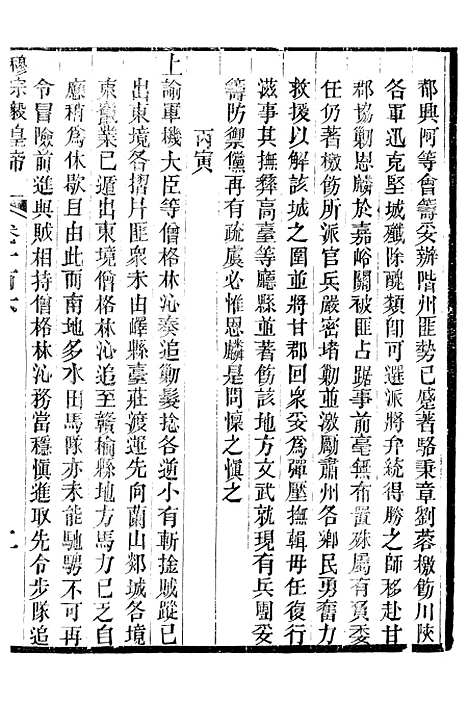 都興阿等會籌妥辦階州匪勢已蹙著駱秉章劉蓉檄飭川陝
各軍迅克堅城殲除醜類卽可選派將弁統得勝之師移赴甘
郡協勦恩麟於嘉峪關被匪占踞事前毫無布置殊屬有負委
任仍著檄飭所派官兵嚴密堵勦並激勵肅州各鄉民勇奮力
救援以解該城之圍並將甘郡回衆妥爲彈壓撫輯毋任復行
滋事其撫彝高臺等廳縣並著飭該地方文武就現有兵團妥
籌防禦儻再有疏虞必惟恩麟是問懍之愼之
丙寅
上諭軍機大臣等僧格林沁奏追勦髮捻各逆小有斬搶賊蹤已
出東境各摺片匪衆未由嶧縣臺莊渡運先向蘭山郯城各境
東竄業已遁出東境僧格林沁追至贛榆縣地方馬力已乏自
應稍爲休歇且由此而南地多水田馬隊亦未能馳騁不可再
令冒險前進與賊相持僧格林沁務當穩愼進取先令步隊追
穆宗毅皇帝 卷一百六